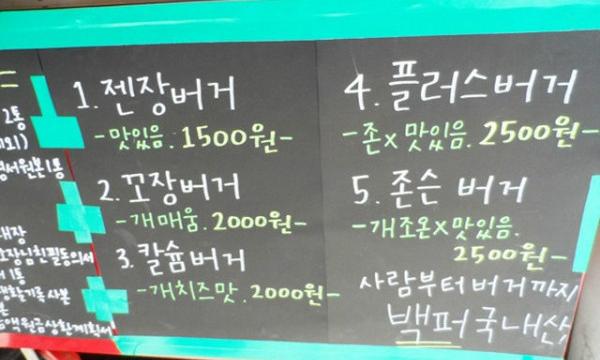 1. 젠장버거
-맛있음. 1500원-
2. 꼬장버거
-개매움. 2000원-
3. 칼슘버거
-개치즈맛. 2000원-
4. 플러스버거
-존x 맛있음. 2500원-
5. 존슨 버거
-개조온x맛있음.
2500원-
사람부터버거까지
백퍼국내산
2통
명서원본1통
대장
1통
생활기록사본